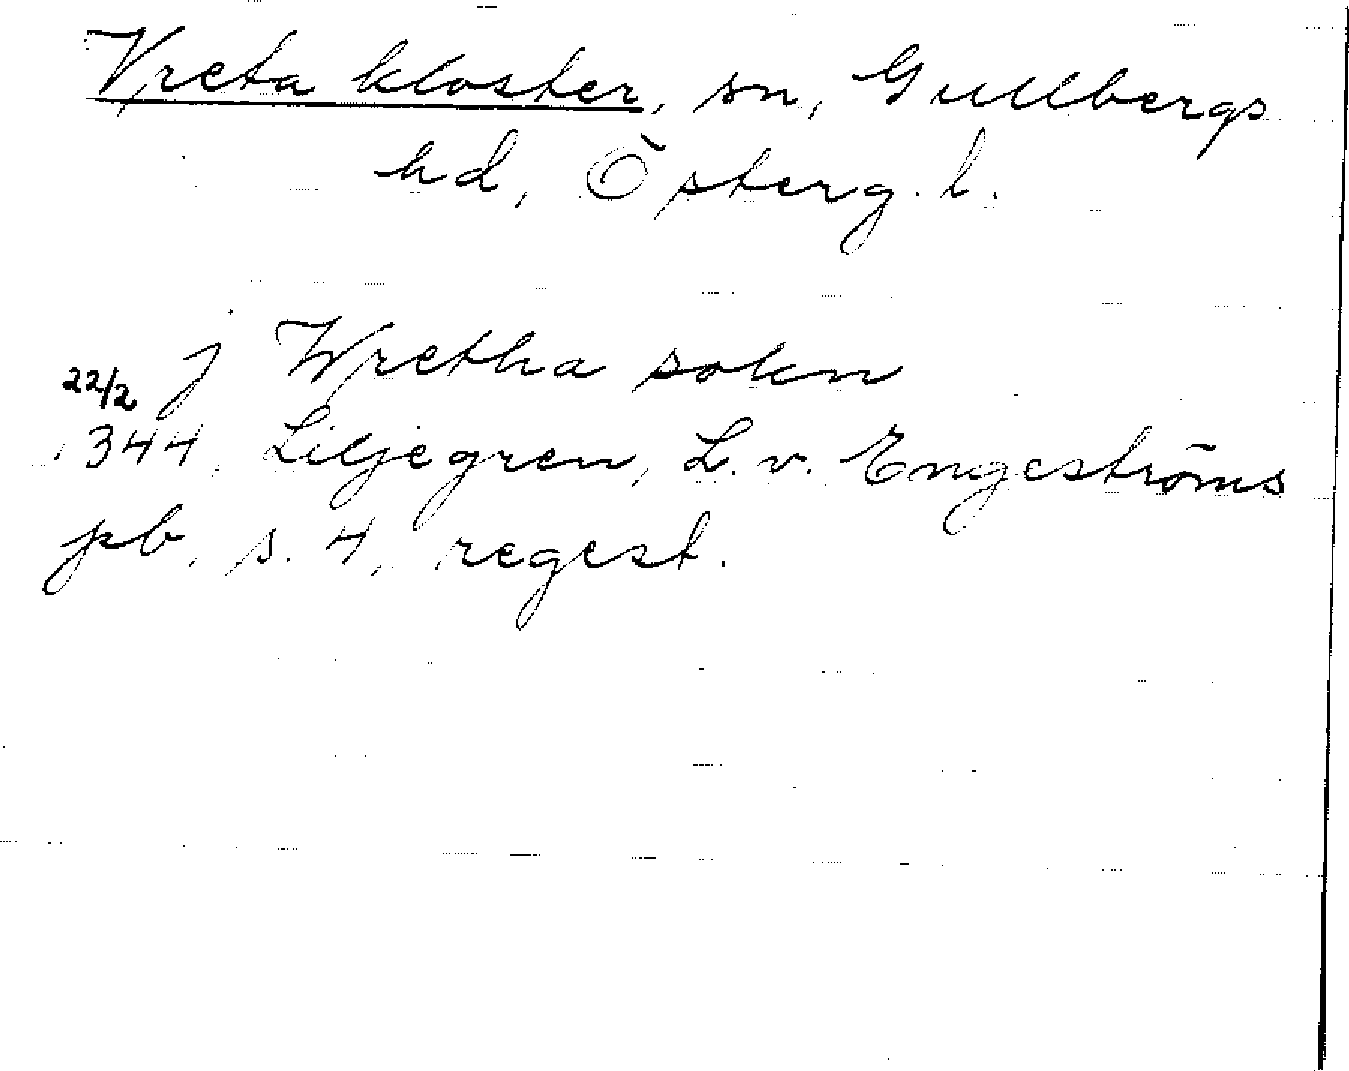 Vreta kloster, sn, Gullbergs
hd, Österg. l.
j Wretha sokn
22/2
1344. Liljegren, L. v. Engeströms
pb, s. 4, regest.